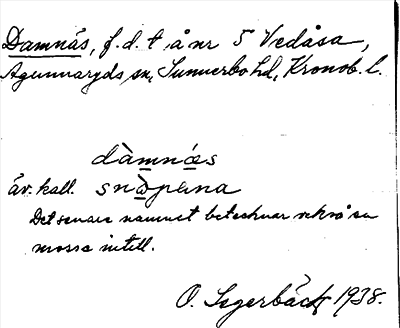 Damnäs, f.d. t å nr 5 Vedåsa,
Agunnaryds sn, Sunnerbo hd, Kronob. l.
dàmnæs
äv. kall. snòpana
Det senare namnet betecknar också en
mosse intill.
O. Segerbäck 1938.